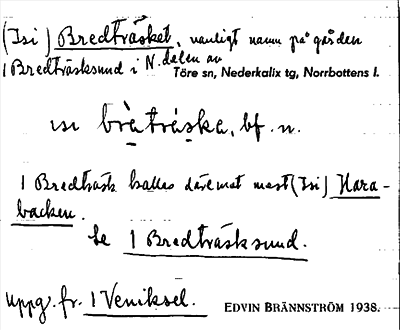 (Isi) Bredträsket, vanligt namn på gården
1 Bredträsksund i N. delen av
Töre sn, Nederkalix tg, Norrbottens l.
ısı brạ̀trạ́ska, bf. n.
1 Bredträsk kallas däremot mest (Isi) Hara-
backen.
Se 1 Bredträsksund.
Uppg. fr. 1 Veniksel. EDVIN BRÄNNSTRÖM 1938.